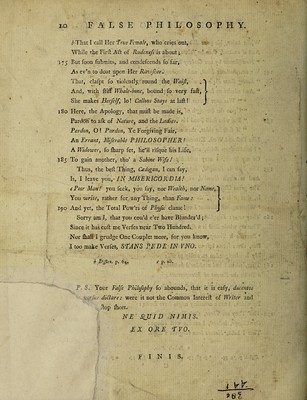 10 FALSE PHILOSOPHY.
b That I call Her True Female, who cries out,
While the First Act of Rudeness is about;
175 But soon submits, and condescends so far,
As ev'n to doat upon Her Ravisher.
That, clasps so violently round the Waist,
And, with stiff Whale-bone, bound so very fast,
She makes Herself, in! Callous Stays at last!
180 Here, the Apology, that must be made is,
Pardon to ask of Nature, and the Ladies.
Pardon, O! Pardon, Ye Forgiving Fair,
An Errant, Miserable PHILOSOPHER!
A Widower, so sharp set, he'll risque his Life,
185 To gain another, tho' a Sabine Wife!
Thus, the best Thing, Gavigan, I can say,
Is, I leave you, IN MISERICORDIA!
c Poor Man! you seek, you say, nor Wealth, nor Name,
You write, rather for, any Thing, than Fame:
190 And yet, the Total Pow'rs of Physic claim!
Sorry am I, that you cou'd e'er have Blunder'd;
Since it has cost me Verses near Two Hundred.
Nor shall I grudge One Couplet more, for you know,
I too make Verses, STANS PEDE IN UNO.
b Dissert. p. 64. c p. ib.
P. S. Your False Philosophy so abounds, that it is easy, ducentos
versus dictare: were it not the Common Interest of Writer and
stop short.
NE QUID NIMIS.
EX ORE TUO.
FINIS.